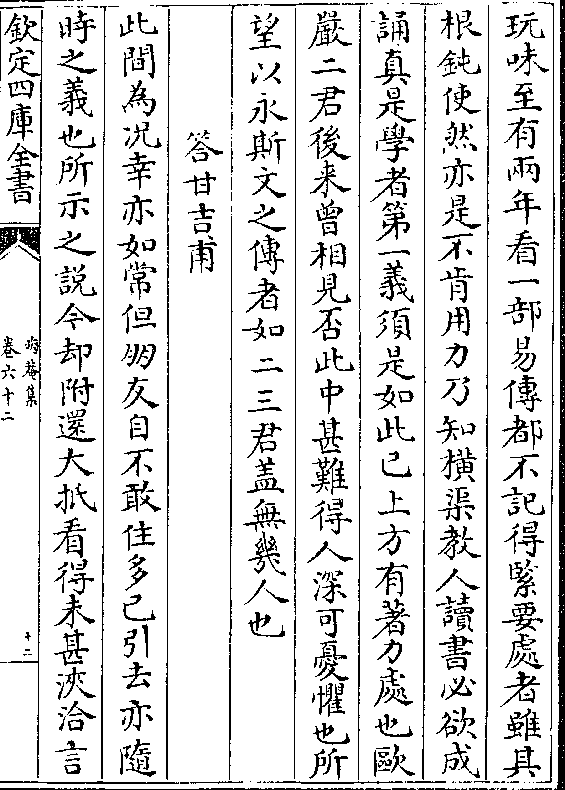 玩味至有兩年看一部易傳都不記得緊要處者雖其
根鈍使然亦是不肯用力乃知橫渠教人讀書必欲成
誦真是學者第一義須是如此已上方有著力處也歐
嚴二君後来曾相見否此中甚難得人深可憂懼也所
望以永斯文之傳者如二三君盖無幾人也
答甘吉甫
此間為况幸亦如常但朋友自不敢住多已引去亦隨
時之義也所示之説今却附還大抵看得未甚浹洽言
欽定四庫全書
晦菴集
卷六十二
十二